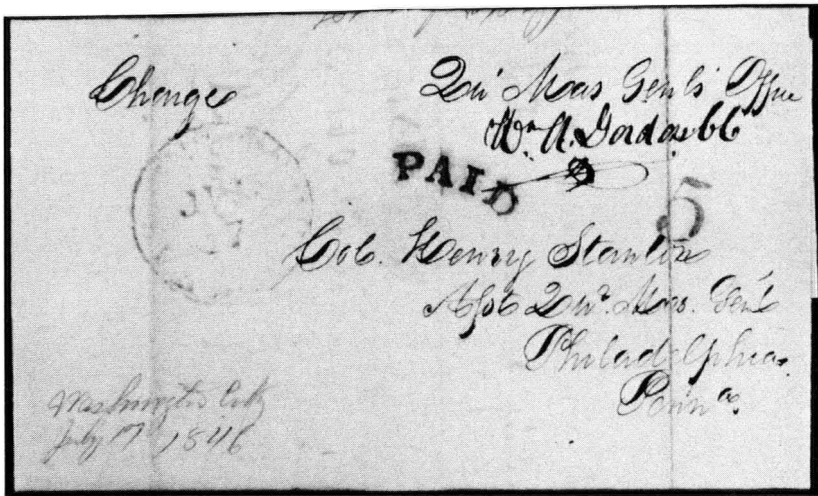 Charge
Qu' Mas Genl's Office
Wm. A. Gordon
PAID
5
Col. Henry Stanton
Asst Qur. Mas. Genl
Philadelphia.
Penna.
Washington City
July 17 1846